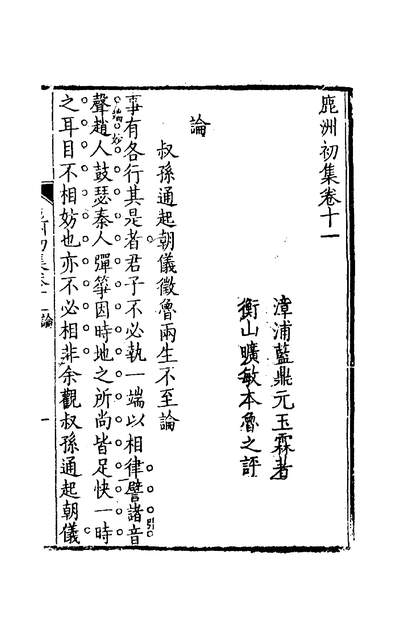 鹿洲初集卷十一
漳浦藍鼎元玉霖著
衡山曠敏本魯之評
論
叔孫通起朝儀徵魯兩生不至論
事有各行其是者君子不必執一端以相律譬諸音
聲趙人鼓瑟秦人彈箏因時地之所尚皆足快一時
之耳目不相妨也亦不必相非余觀叔孫通起朝儀